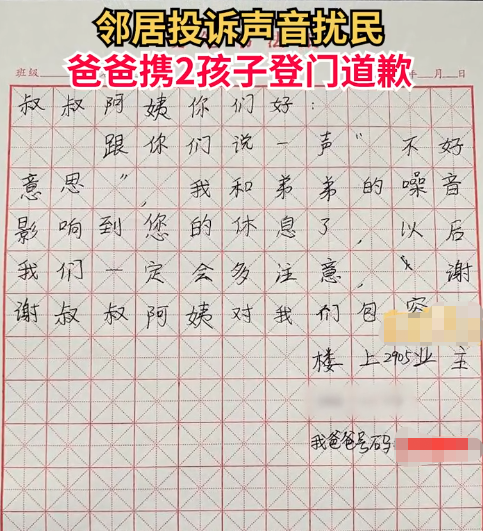 邻居投诉声音扰民
爸爸携2孩子登门道歉
班级
年 月 日
叔叔阿姨你们好：
跟你们说一声"不好
意思"，我和弟弟的噪音
影响到您的休息了，以后
我们一定会多注意，谢
谢叔叔阿姨对我们包容
楼上2905业主
我爸爸号码